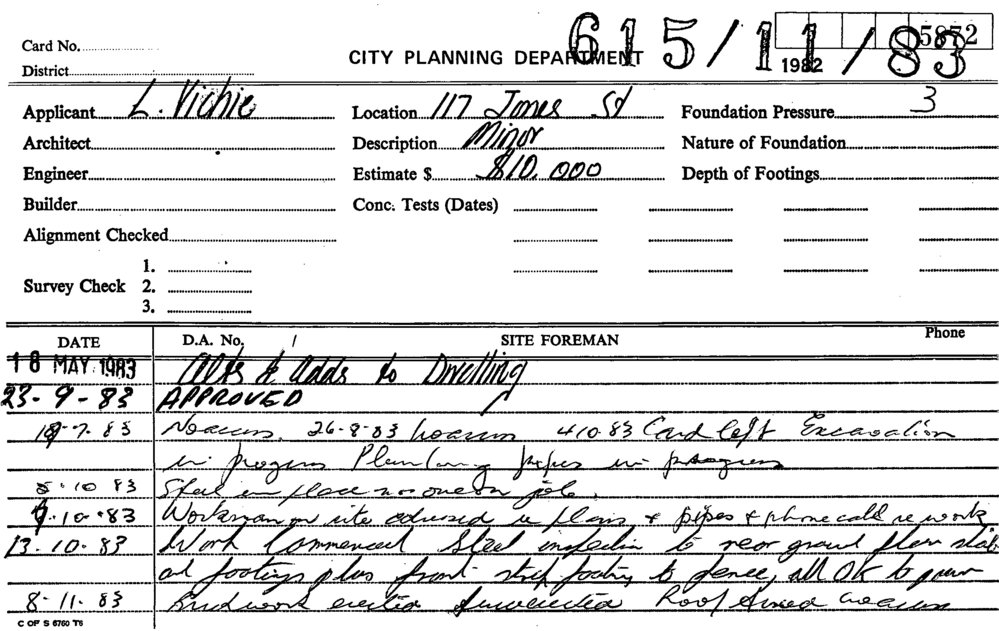 615/11/83
5872
Card No.
CITY PLANNING DEPARTMENT
1982
District
Applicant L. Vichie Location 117 Jones St Foundation Pressure 3
Architect Description Minor Nature of Foundation
Engineer Estimate $ $10,000 Depth of Footings
Builder Conc. Tests (Dates)
Alignment Checked
1.
Survey Check 2.
3.
DATE D.A. No. SITE FOREMAN Phone
18 MAY 1983 Alts & Adds to Dwelling
23-9-83 APPROVED
7.83 Noaccess. 26-8-83 Noaccess 410.83 Card left Excavation
in progress Plan pipes in progress
5.10 83 Steel in place no one on job.
10.83 Workman on site advised re plans + pipes + phone call re work
13.10.83 Work Commenced Steel inspection to rear ground floor slab
and footings plus front strip footing to fence, all OK to pour
8.11.83 Brickwork erected Roof
C OF S 6760 T6